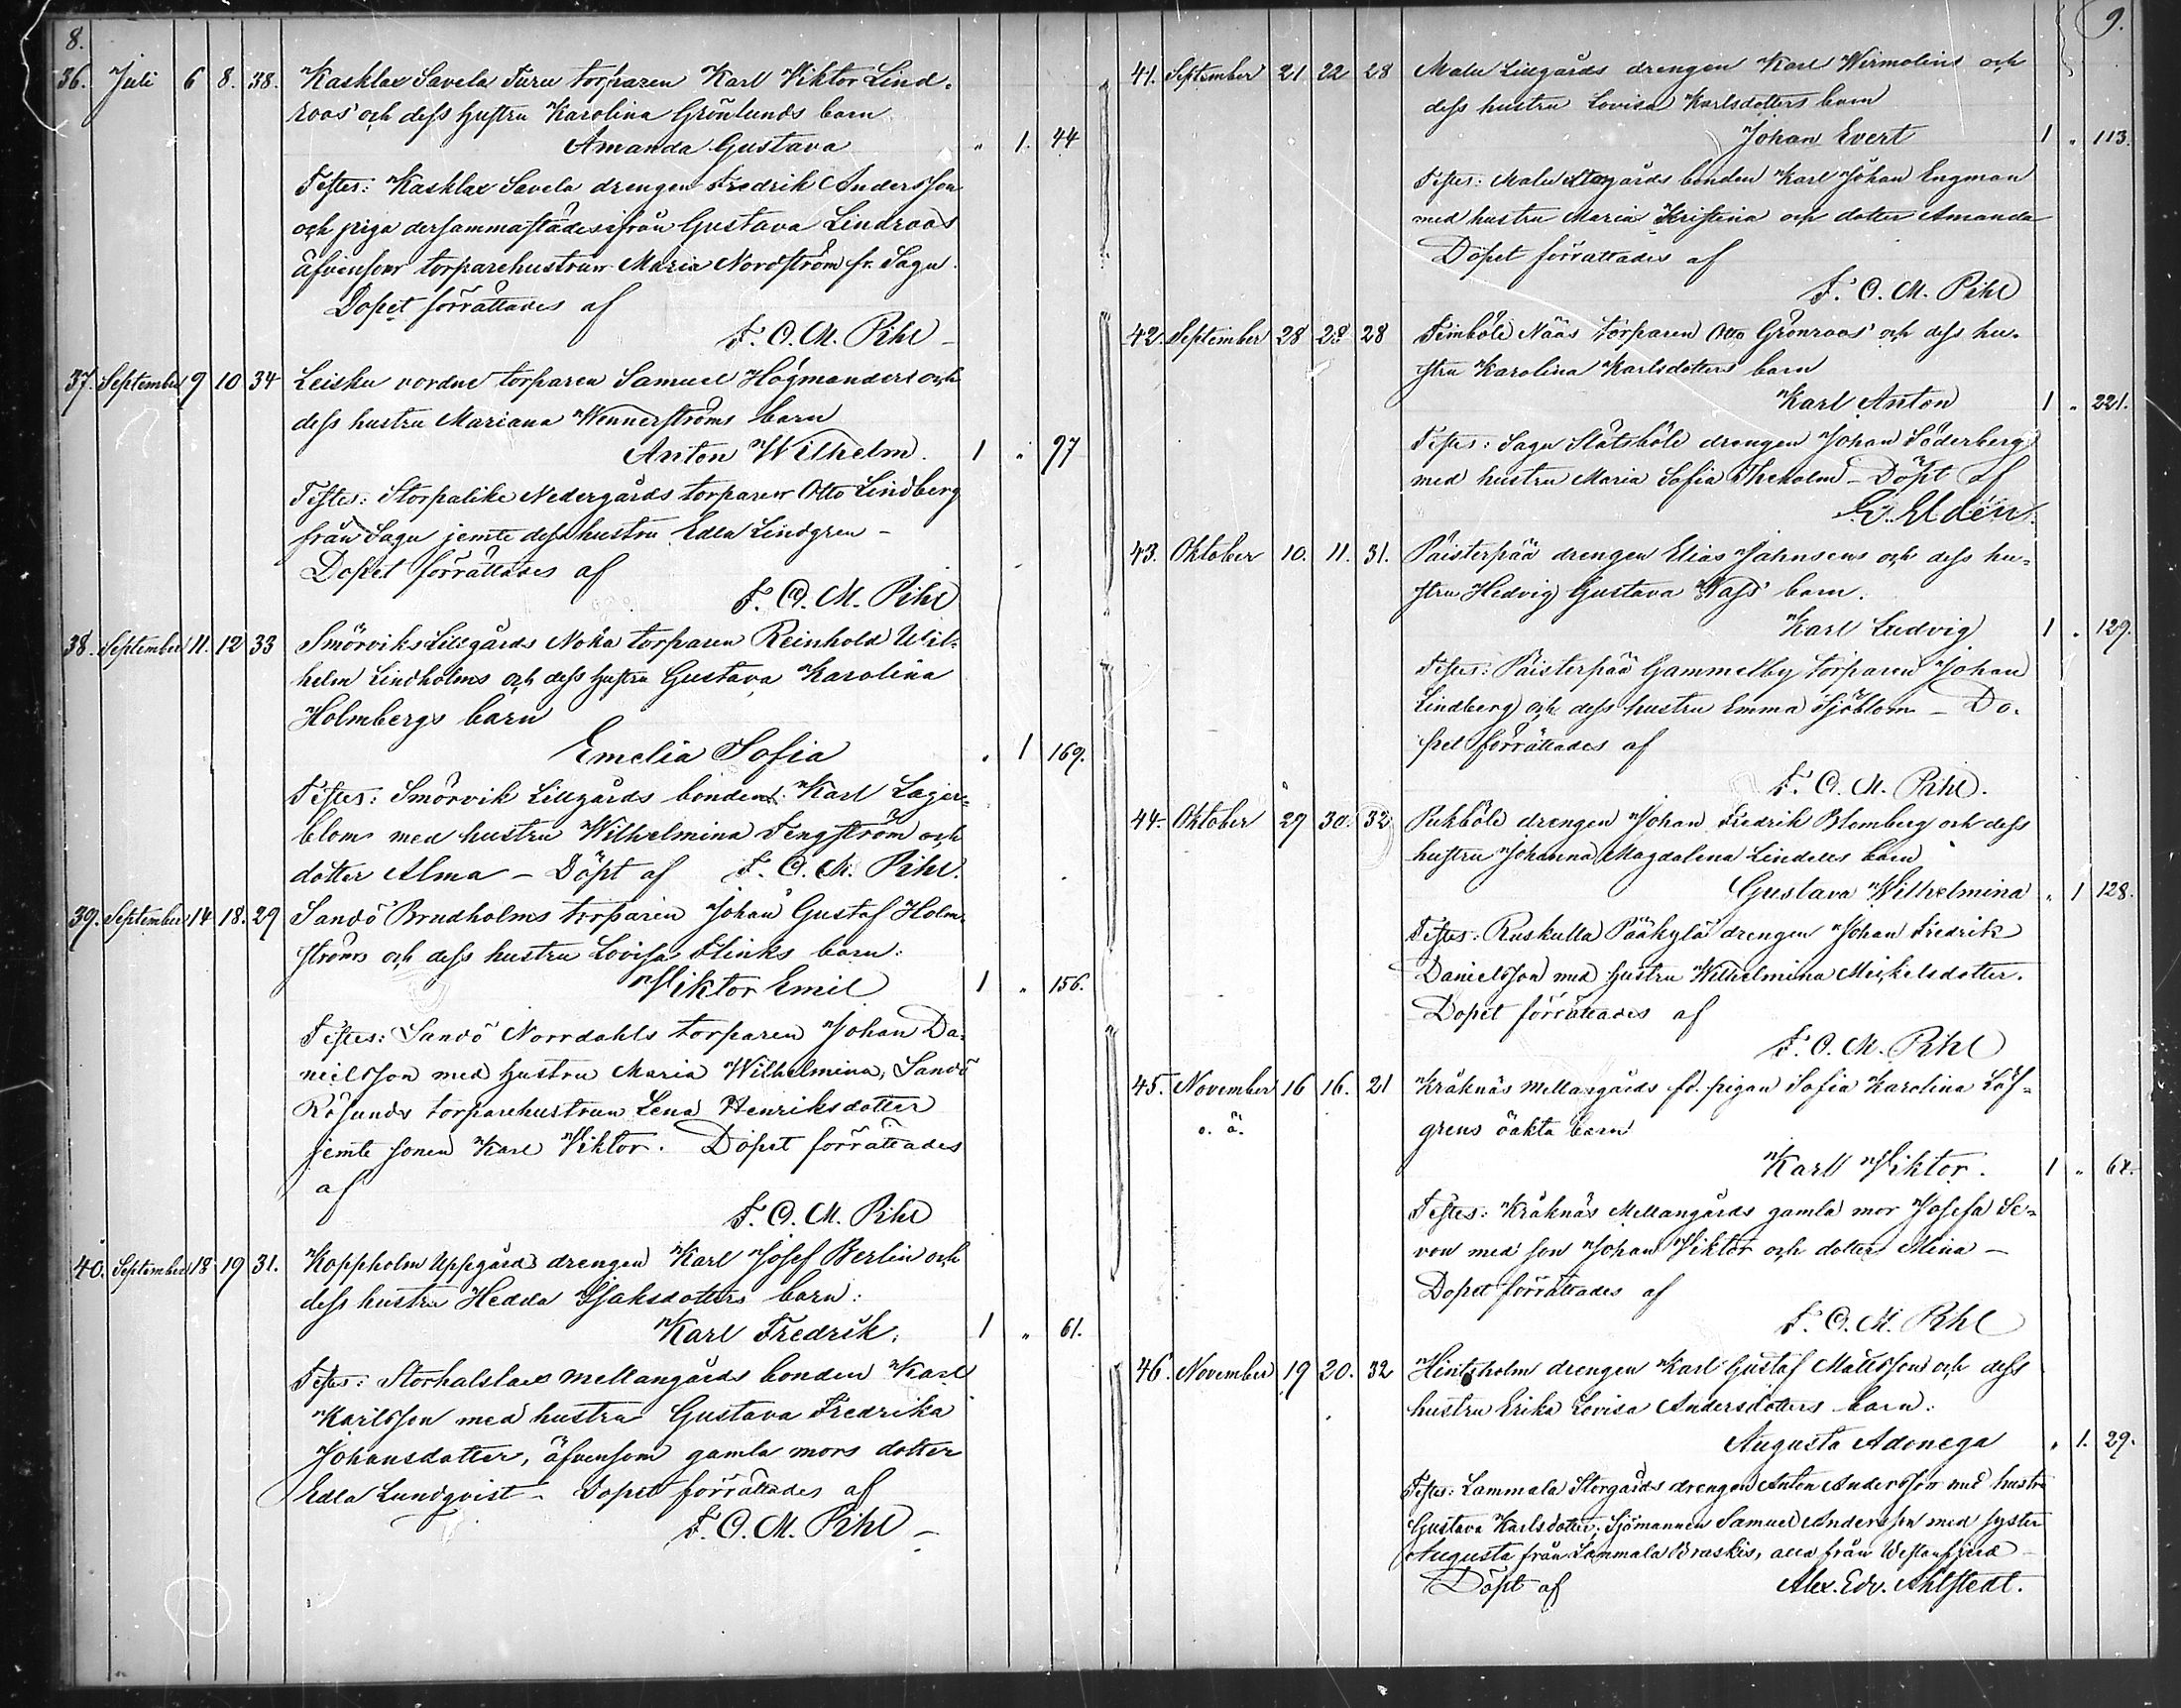 8.
36. Juli 6 8. 38. Kasklax Savela Turu torparen Karl Viktor Lind-
roos' och dess hustru Karolina Grönlunds barn
Amanda Gustava " 1. 44
Testes: Kasklax Savela drengen Fredrik Andersson
och piga dersammastädesifrån Gustava Lindroos
äfvensom torparehustrun Maria Nordström fr. Sagu.
Dopet förrättades af
F. O. M. Pihl
37. September 9 10 34 Leisku vordne torparen Samuel Högmanders och
dess hustru Mariana Wennerströms barn
Anton Wilhelm. 1 " 97
Testes: Storpalike Nedergårds torparen Otto Lindberg
från Sagu jemte dess hustru Edla Lindgren –
Dopet förrättades af
F. O. M. Pihl
38. September 11. 12 33 Smörviks Lillgårds Noka torparen Reinhold Wil-
helm Lindholms och dess hustru Gustava Karolina
Holmbergs barn
Emelia Sofia " 1 169.
Testes: Smörvik Lillgårds bonden Karl Lager-
blom med hustru Wilhelmina Tengström och
dotter Alma – Döpt af F. O. M. Pihl.
39. September 14 18. 29 Sandö Brudholms torparen Johan Gustaf Holm-
ströms och dess hustru Lovisa Flinks barn:
Viktor Emil 1 " 156.
Testes: Sandö Norrdahls torparen Johan Da-
nielsson med hustru Maria Wilhelmina, Sandö
Rösunds torparehustrun Lena Henriksdotter
jemte sonen Karl Viktor. Dopet förrättades
af
F. O. M. Pihl
40. September 18 19 31. Koppholm Uppgårds drengen Karl Josef Berlin och
dess hustru Hedda Isaksdotters barn:
Karl Fredrik. 1 " 61.
Testes: Storhalslax mellangårds bonden Karl
Karlsson med hustru Gustava Fredrika
Johansdotter, äfvensom gamla mors dotter
Edla Lundqvist – Dopet förrättades af
F. O. M. Pihl –
9.
41. September 21 22 28 Malu Lillgårds drengen Karl Wirmolins och
dess hustru Lovisa Karlsdotters barn
Johan Evert 1 " 113.
Testes: Malu Storgårds bonden Karl Johan Engman
med hustru Maria Kristina och dotter Amanda
Dopet förrättades af
F. O. M. Pihl
42. September 28 28 28 Fimböle Nääs torparen Otto Grönroos' och dess hu-
stru Karolina Karlsdotters barn
Karl Anton 1 " 221.
Testes: Sagu Slåtsböle drengen Johan Söderberg
med hustru Maria Sofia Ekholm – Döpt af
E. Eldén.
43. Oktober 10. 11. 31. Päisterpää drengen Elias Jahnsens och dess hu-
stru Hedvig Gustava Wass' barn.
Karl Ludvig 1 " 129.
Testes: Päisterpää Gammelby torparen Johan
Lindberg och dess hustru Emma Sjöblom – Do-
pet förrättades af
F. O. M. Pihl.
44. Oktober 29 30. 32 Pukböle drengen Johan Fredrik Blomberg och dess
hustru Johanna Magdalena Lindells barn
Gustava Wilhelmina " 1 128.
Testes: Ruskulla Pääkylä drengen Johan Fredrik
Danielsson med hustru Wilhelmina Mickelsdotter.
Dopet förrättades af
F. O. M. Pihl
45. November 16 16. 21 Kråknäs Mellangårds fd. pigan Sofia Karolina Löf-
o. ä. grens oäkta barn
Karl Viktor. 1 " 64.
Testes: Kråknäs Mellangårds gamla mor Josefa Se-
von med son Johan Viktor och dotter Mina –
Dopet förrättades af
F. O. M. Pihl
46. November 19 20. 32 Hintsholm drengen Karl Gustaf Mattssons och dess
hustru Erika Lovisa Andersdotters barn:
Augusta Adonega " 1. 29.
Testes: Lammala Storgårds drengen Anton Andersson med hustru
Gustava Karlsdotter, Sjömannen Samuel Andersson med syster
Augusta från Lammala Braskis, alla från Westanfjerd –
Döpt af Alex. Edv. Ahlstedt.